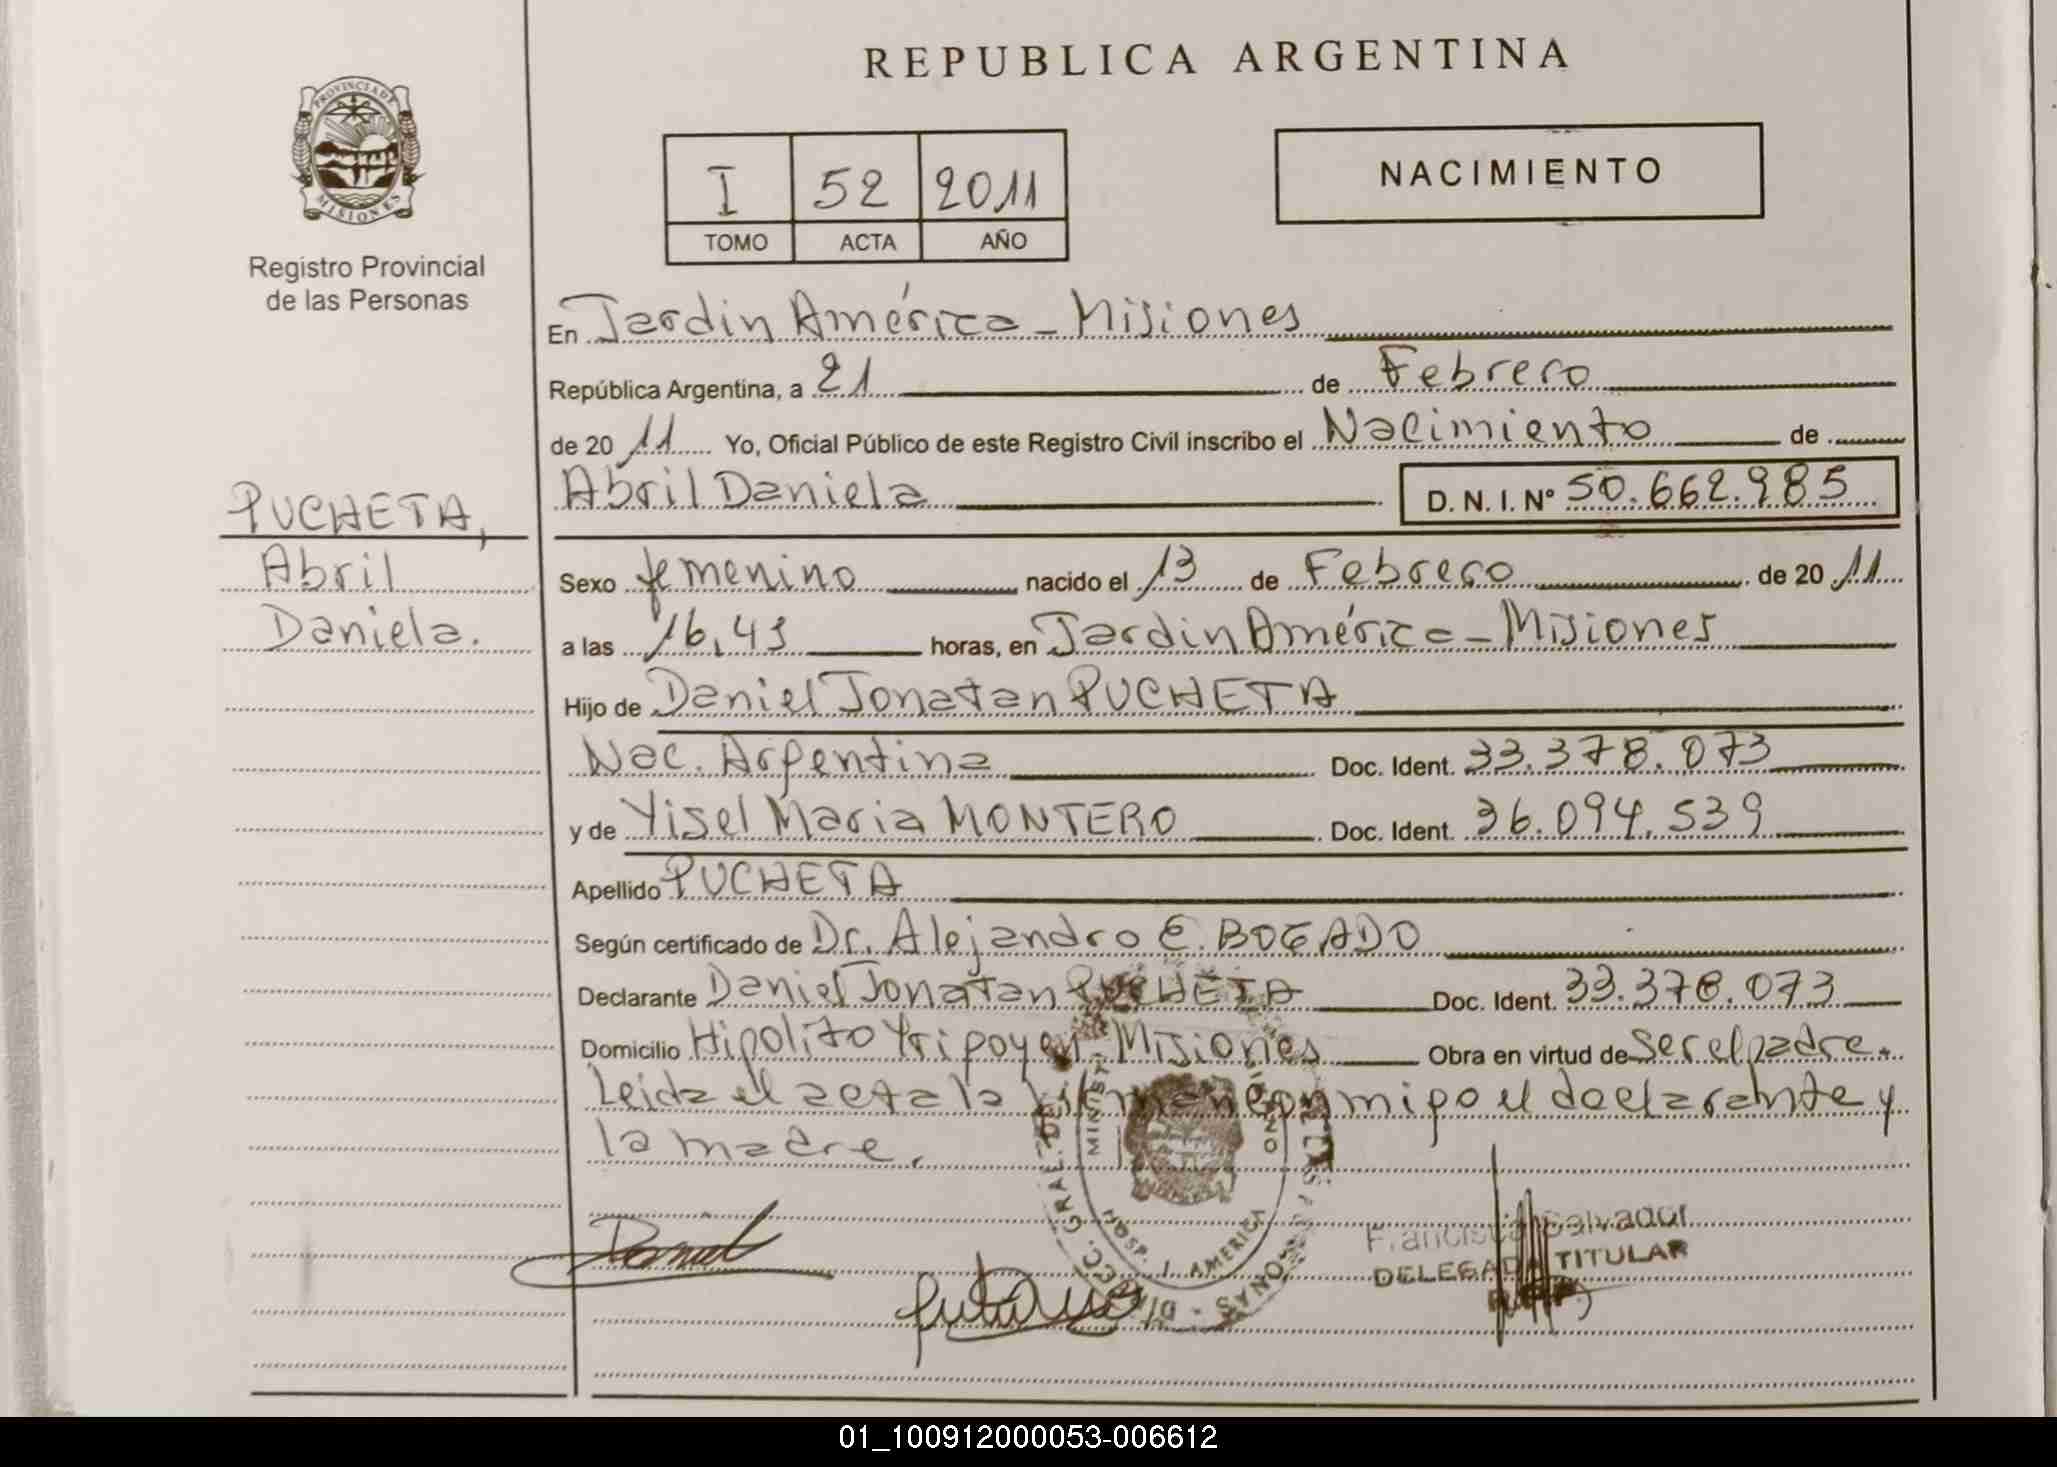 REPUBLICA ARGENTINA
PROVINCIA DE
MISIONES
Registro Provincial
de las Personas
I 52 2011
TOMO ACTA AÑO
NACIMIENTO
En Jardin América - Misiones
República Argentina, a 21 de Febrero
de 20 11 Yo, Oficial Público de este Registro Civil inscribo el Nacimiento de
Abril Daniela D. N. I. Nº 50.662.985
PUCHETA,
Abril
Daniela.
Sexo femenino nacido el 13 de Febrero de 20 11
a las 16,43 horas, en Jardin América - Misiones
Hijo de Daniel Jonatan PUCHETA
Nac. Argentina Doc. Ident. 33.378.073
y de Yisel Maria MONTERO Doc. Ident. 36.094.539
Apellido PUCHETA
Según certificado de Dr. Alejandro E. BOGADO
Declarante Daniel Jonatan PUCHETA Doc. Ident. 33.378.073
Domicilio Hipolito Yrigoyen - Misiones Obra en virtud de ser el padre.
Leida el acta la firman conmigo el declarante y
la madre.
HOSP. J. AMERICA
Daniel
Francisca Salvador
DELEGADA TITULAR
01_100912000053-006612